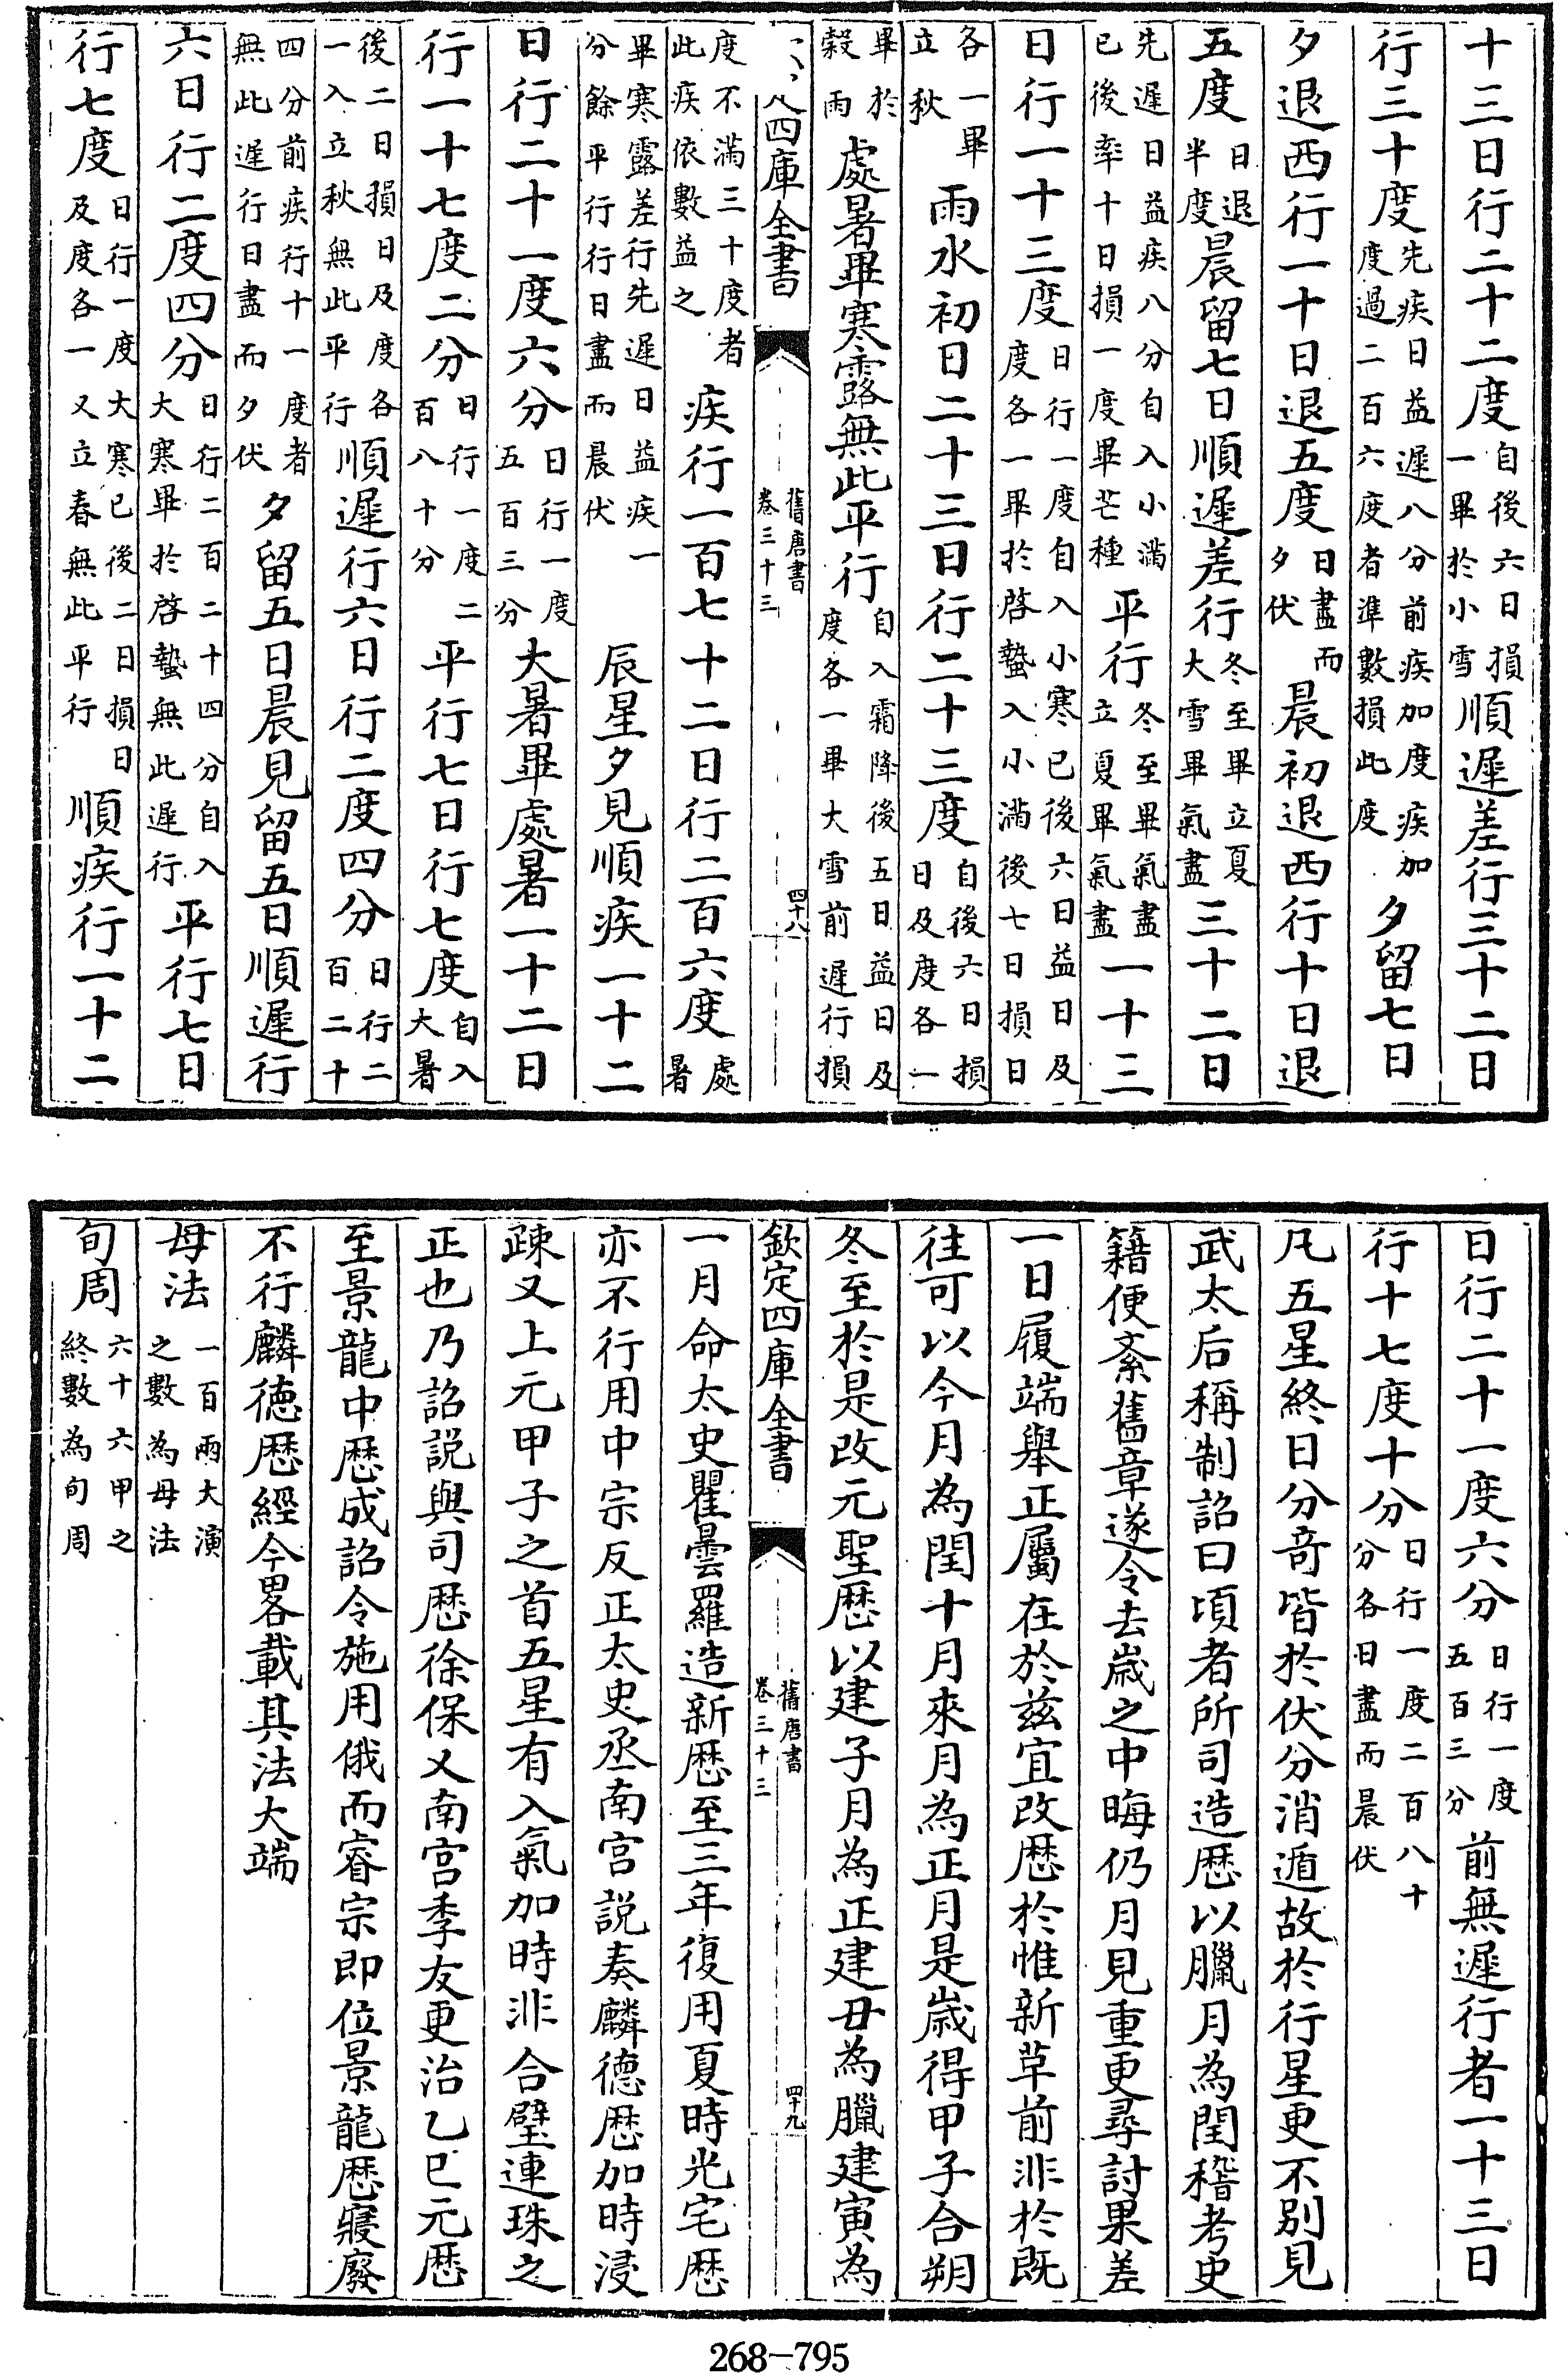 十三日行二十二度自後六日損一畢於小雪順遲差行三十二日
行三十度先疾日益遲八分前疾加度疾加度過二百六度者準數損此度夕留七日
夕退西行一十日退五度日盡而夕伏晨初退西行十日退
五度日退半度晨留七日順遲差行冬至畢立夏大雪畢氣盡三十二日
先遲日益疾八分自入小滿已後率十日損一度畢芒種平行冬至畢氣盡立夏畢氣盡一十三
日行一十三度日行一度自入小寒已後六日益日及度各一畢於啓蟄入小滿後七日損日
各一畢立秋雨水初日二十三日行二十三度自後六日損日及度各一
畢於穀雨處暑畢寒露無此平行自入霜降後五日益日及度各一畢大雪前遲行損
四庫全書 舊唐書卷三十三 四十八
度不滿三十度者此疾依數益之疾行一百七十二日行二百六度處暑
畢寒露差行先遲日益疾一分餘平行行日盡而晨伏 辰星夕見順疾一十二
日行二十一度六分日行一度五百三分大暑畢處暑一十二日
行一十七度二分日行一度二百八十分平行七日行七度自入大暑
後二日損日及度各一入立秋無此平行順遲行六日行二度四分日行二百二十
四分前疾行十一度者無此遲行日盡而夕伏夕留五日晨見留五日順遲行
六日行二度四分日行二百二十四分自入大寒畢於啓蟄無此遲行平行七日
行七度日行一度大寒已後二日損日及度各一又立春無此平行順疾行一十二
日行二十一度六分日行一度五百三分前無遲行者一十三日
行十七度十分日行一度二百八十分各日盡而晨伏
凡五星終日分奇皆於伏分消遁故於行星更不別見
武太后稱制詔曰頃者所司造厯以臘月為閏稽考史
籍便紊舊章遂令去嵗之中晦仍月見重更尋討果差
一日履端舉正屬在於兹宜改厯於惟新革前非於既
往可以今月為閏十月來月為正月是嵗得甲子合朔
冬至於是改元聖厯以建子月為正建丑為臘建寅為
欽定四庫全書 舊唐書卷三十三 四十九
一月命太史瞿曇羅造新厯至三年復用夏時光宅厯
亦不行用中宗反正太史丞南宫説奏麟徳厯加時浸
疎又上元甲子之首五星有入氣加時非合璧連珠之
正也乃詔説與司厯徐保乂南宫季友更治乙巳元厯
至景龍中厯成詔令施用俄而睿宗即位景龍厯寢廢
不行麟徳厯經今畧載其法大端
母法一百兩大演之數為母法
旬周六十六甲之終數為旬周
268-795